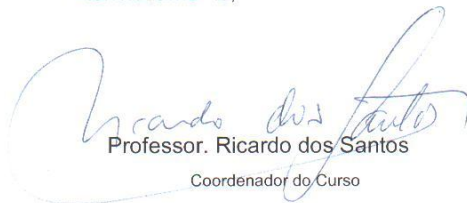 Ricardo dos Santos
Professor. Ricardo dos Santos
Coordenador do Curso